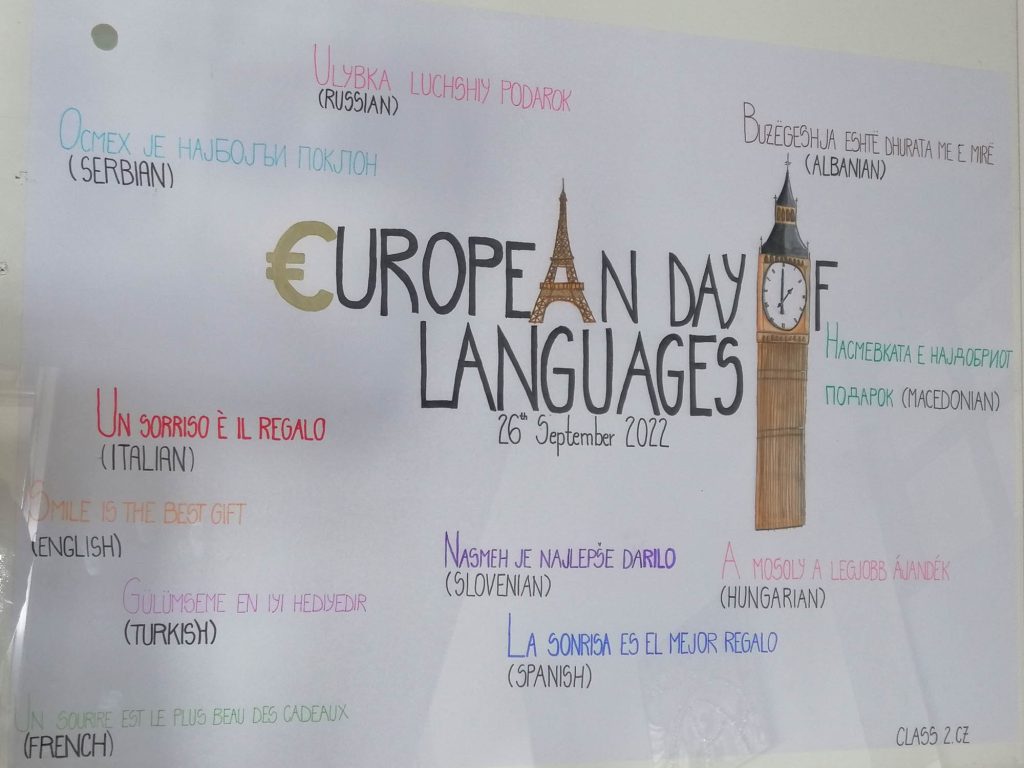 ULYBKA LUCHSHIY PODAROK
(RUSSIAN)
ОСМЕХ ЈЕ НАЈБОЉИ ПОКЛОН
(SERBIAN)
BUZËGESHJA ESHTË DHURATA ME E MIRË
(ALBANIAN)
€UROPEAN DAY OF
LANGUAGES
26th September 2022
НАСМЕВКАТА Е НАЈДОБРИОТ
ПОДАРОК (MACEDONIAN)
UN SORRISO È IL REGALO
(ITALIAN)
SMILE IS THE BEST GIFT
(ENGLISH)
NASMEH JE NAJLEPŠE DARILO
(SLOVENIAN)
A MOSOLY A LEGJOBB ÁJANDÉK
(HUNGARIAN)
GÜLÜMSEME EN IYI HEDIYEDIR
(TURKISH)
LA SONRISA ES EL MEJOR REGALO
(SPANISH)
UN SOURIRE EST LE PLUS BEAU DES CADEAUX
(FRENCH)
CLASS 2.CZ